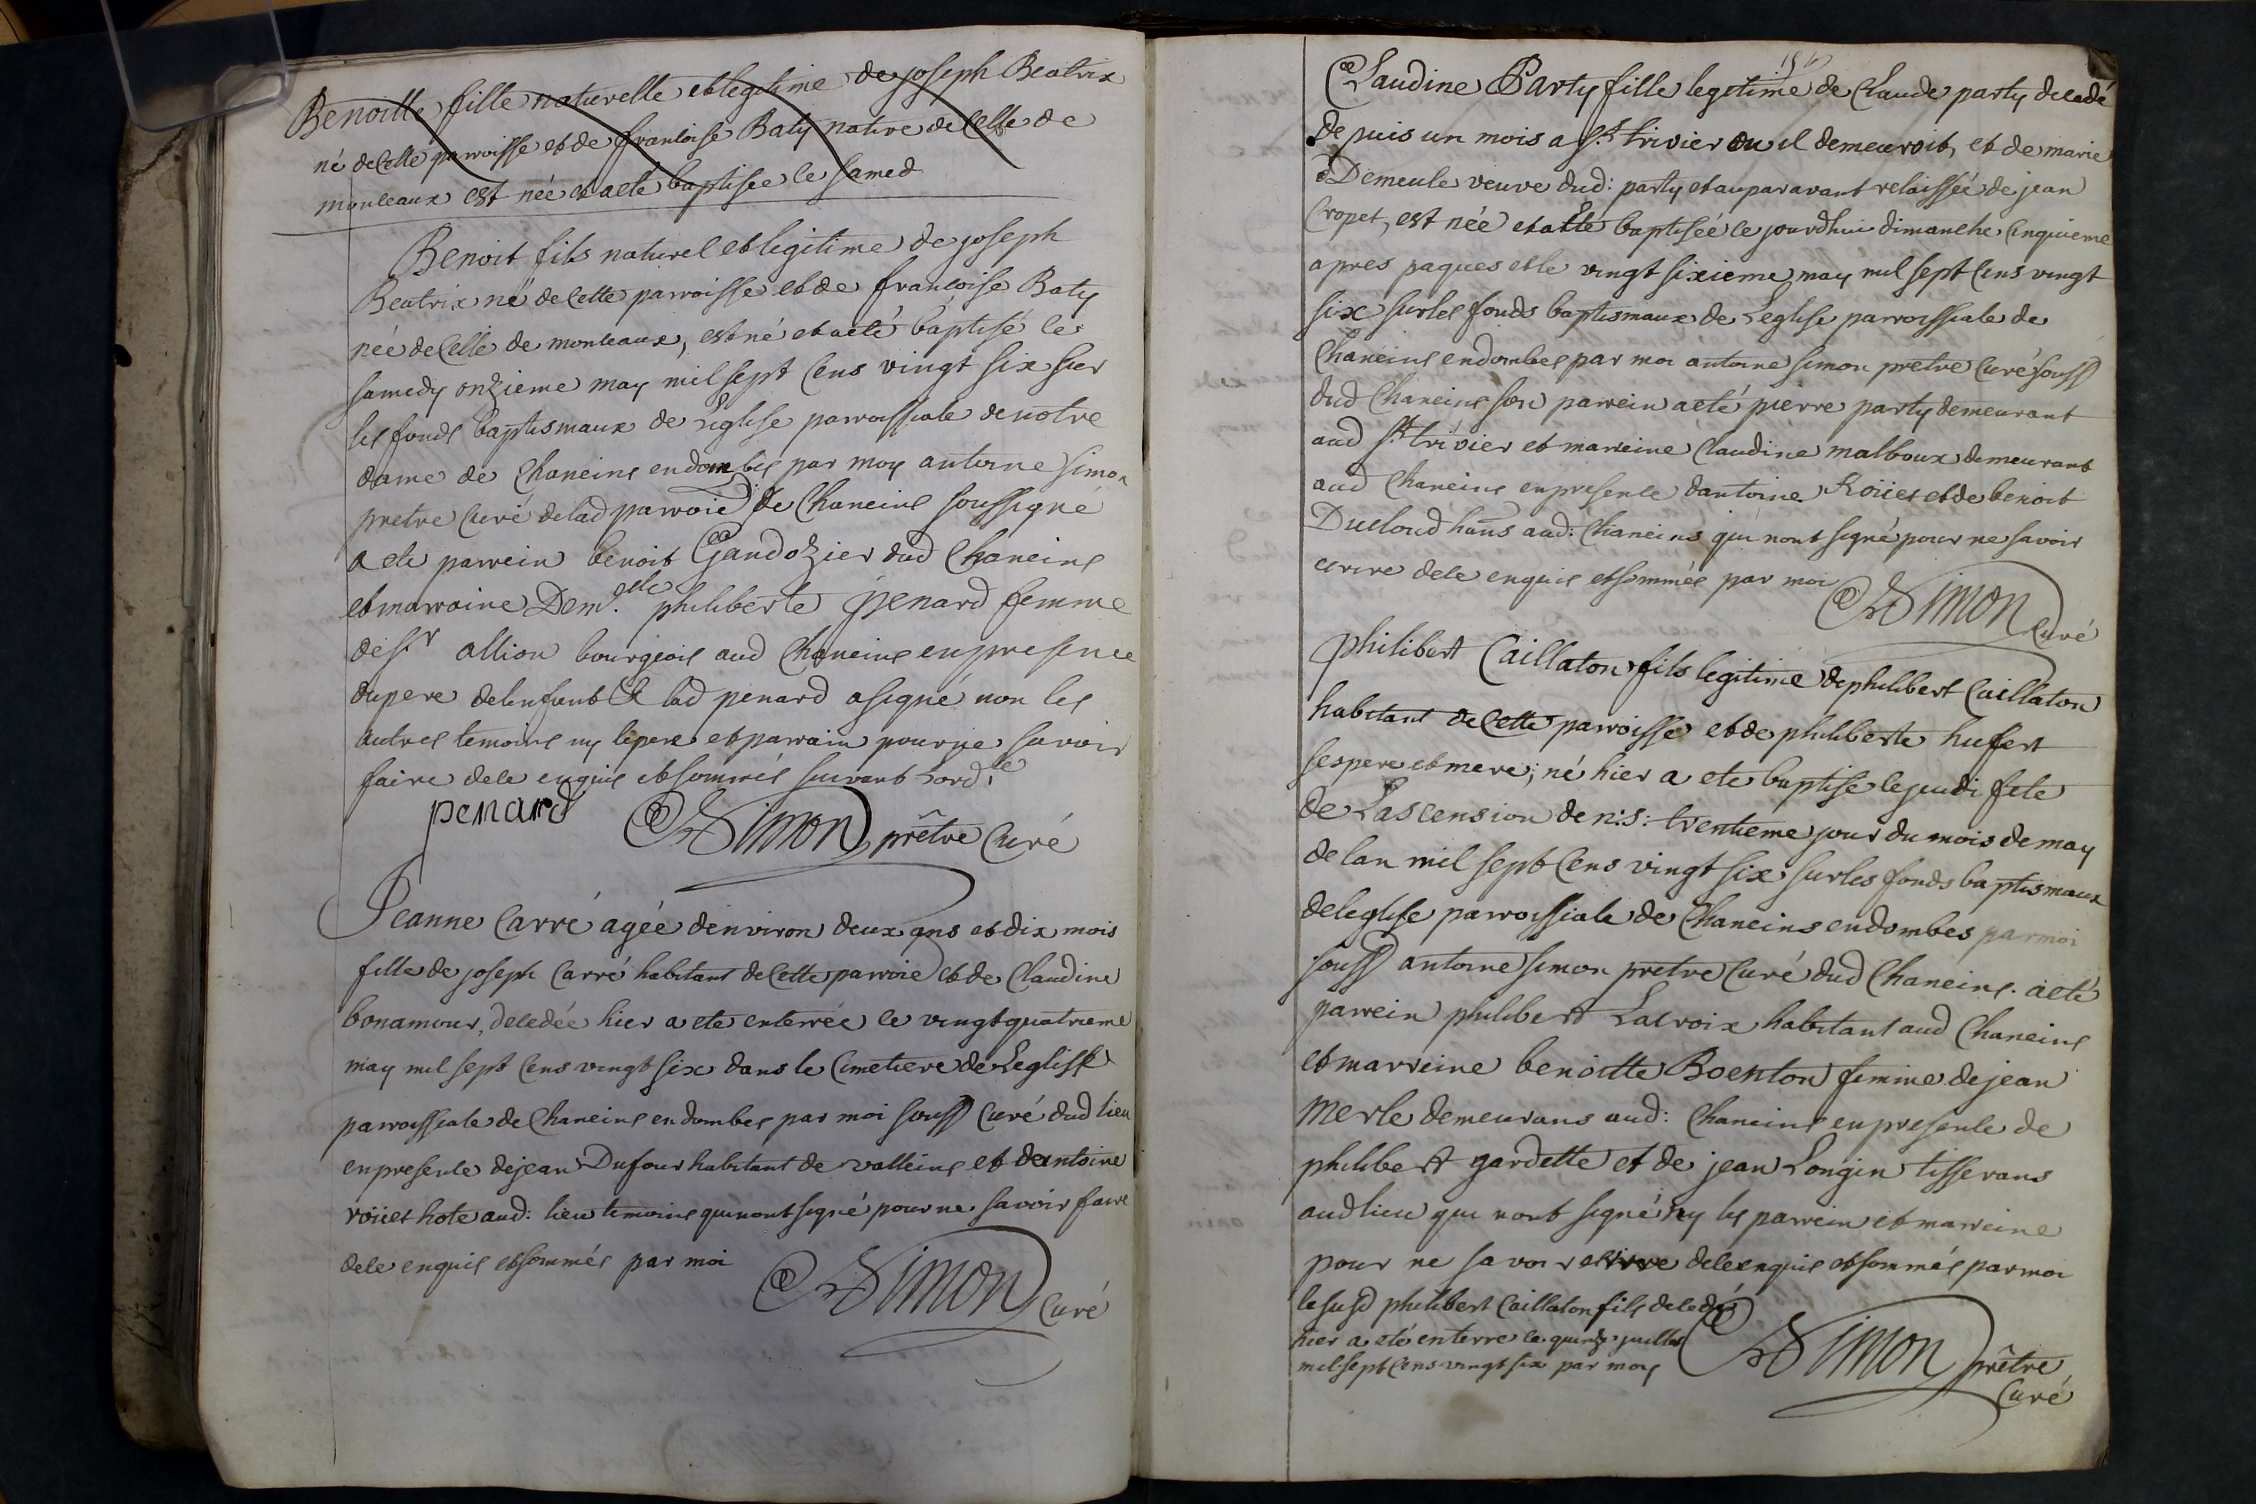 Benoitte fille naturelle et legitime de joseph Beatrix
né de Cette parroisse et de francoise Baty native de Celle de
monceaux est née et a eté baptisée le samed
Benoit fils naturel et legitime de joseph
Beatrix né de Cette parroisse et de francoise Baty
née de Celle de monceaux, est né et a eté baptisé le
samedy onzieme may mil sept Cens vingt six sur
les fonds baptismaux de L'eglise parroissiale de notre
dame de Chaneins en dombes par moy antoine Simon
pretre Curé de lad parroie de Chaneins soussigné
a ete parrein benoit Gandozier dud Chaneins
et marraine Dem.elle philiberte penard femme
de Sr allion bourgeois aud Chaneins en presence
du pere de lenfant & lad penard a signé non les
autres temoins ny le pere et parrain pour ne savoir
faire de ce enquis et sommés suivant Lord.ce
penard Simon prêtre Curé
Jeanne Carré agée denviron deux ans et dix mois
fille de joseph Carré habitant de Cette parroie et de Claudine
bonamour, decedée hier a ete enterrée ce vingt quatrieme
may mil sept Cens vingt six dans le Cimetiere de Leglise
parroissiale de Chaneins en dombes par moi souss Curé dud lieu
en presence de jean Dufour habitant de valleins et dantoine
roiiet hote aud: lieu temoins qui nont signé pour ne savoir faire
de ce enquis et sommés par moi Simon Curé
Claudine Party fille legitime de Claude party decedé
depuis un mois a St trivier ou il demeuroit, et de marie
Demeule veuve dud: party et auparavant relaissée de jean
Cropet, est née et a eté baptisée ce jourdhui dimanche Cinquieme
apres paques et le vingt sixieme may mil sept Cens vingt
six sur les fonds baptismaux de Leglise parroissiale de
Chaneins en dombes par moi antoine simon pretre Curé souss
dud Chaneins son parrein a eté pierre party demeurant
aud St trivier et marreine Claudine malboux demeurant
aud Chaneins en presence dantoine Roiiet et de benoit
Ducloud hans aud: Chaneins qui nont signé pour ne savoir
ecrire de ce enquis et sommés par moi Simon Curé
philibert Caillaton fils legitime de philibert Caillaton
habitant de Cette parroisse et de philiberte hufert
ses pere et mere; né hier a ete baptise le jeudi fete
de Lascension de n: s: trentieme jour du mois de may
de lan mil sept Cens vingt six sur les fonds baptismaux
de leglise parroissiale de Chaneins en dombes par moi
souss antoine simon pretre Curé dud Chaneins. a eté
parrein philibert Lacroix habitant aud Chaneins
et marreine benoitte Boenton femme de jean
merle demeurans aud: Chaneins en presence de
philibert gardette et de jean Longin tisserans
aud lieu qui nont signé ny les parrein et marreine
pour ne savoir ecrire de ce enquis et sommés par moi
le susd philibert Caillaton fils decedé
hier a eté enterre le quinze juillet
mil sept Cens vingt six par moy Simon prêtre
Curé